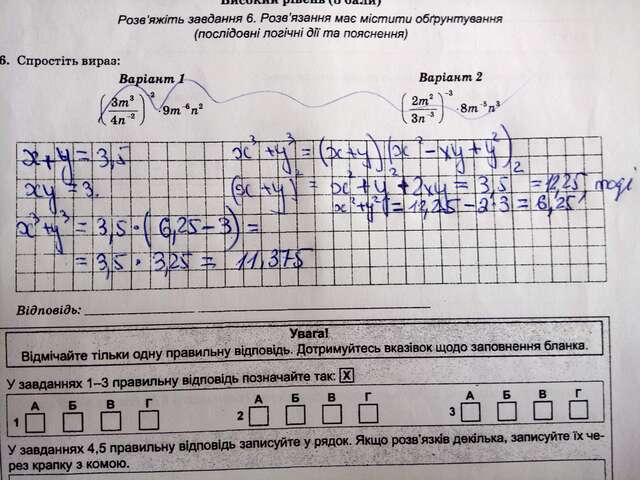 Високий рівень (6 бали)
Розв'яжіть завдання 6. Розв'язання має містити обґрунтування
(послідовні логічні дії та пояснення)
6. Спростіть вираз:
Варіант 1
Варіант 2
(3m³/4n⁻²)⁻² · 9m⁻⁶n²
(2m²/3n⁻³)⁻³ · 8m⁻⁵n³
x+y=3,5
xy=3.
x³+y³=3,5·(6,25-3)=
=3,5·3,25=11,375
x³+y³=(x+y)(x²-xy+y²)
(x+y)²=x²+y²+2xy=3,5²=12,25 тоді
x²+y²=12,25-2·3=6,25,
Відповідь:
Увага!
Відмічайте тільки одну правильну відповідь. Дотримуйтесь вказівок щодо заповнення бланка.
У завданнях 1–3 правильну відповідь позначайте так: X
А Б В Г
1
А Б В Г
2
А Б В Г
3
У завданнях 4,5 правильну відповідь записуйте у рядок. Якщо розв'язків декілька, записуйте їх че-
рез крапку з комою.